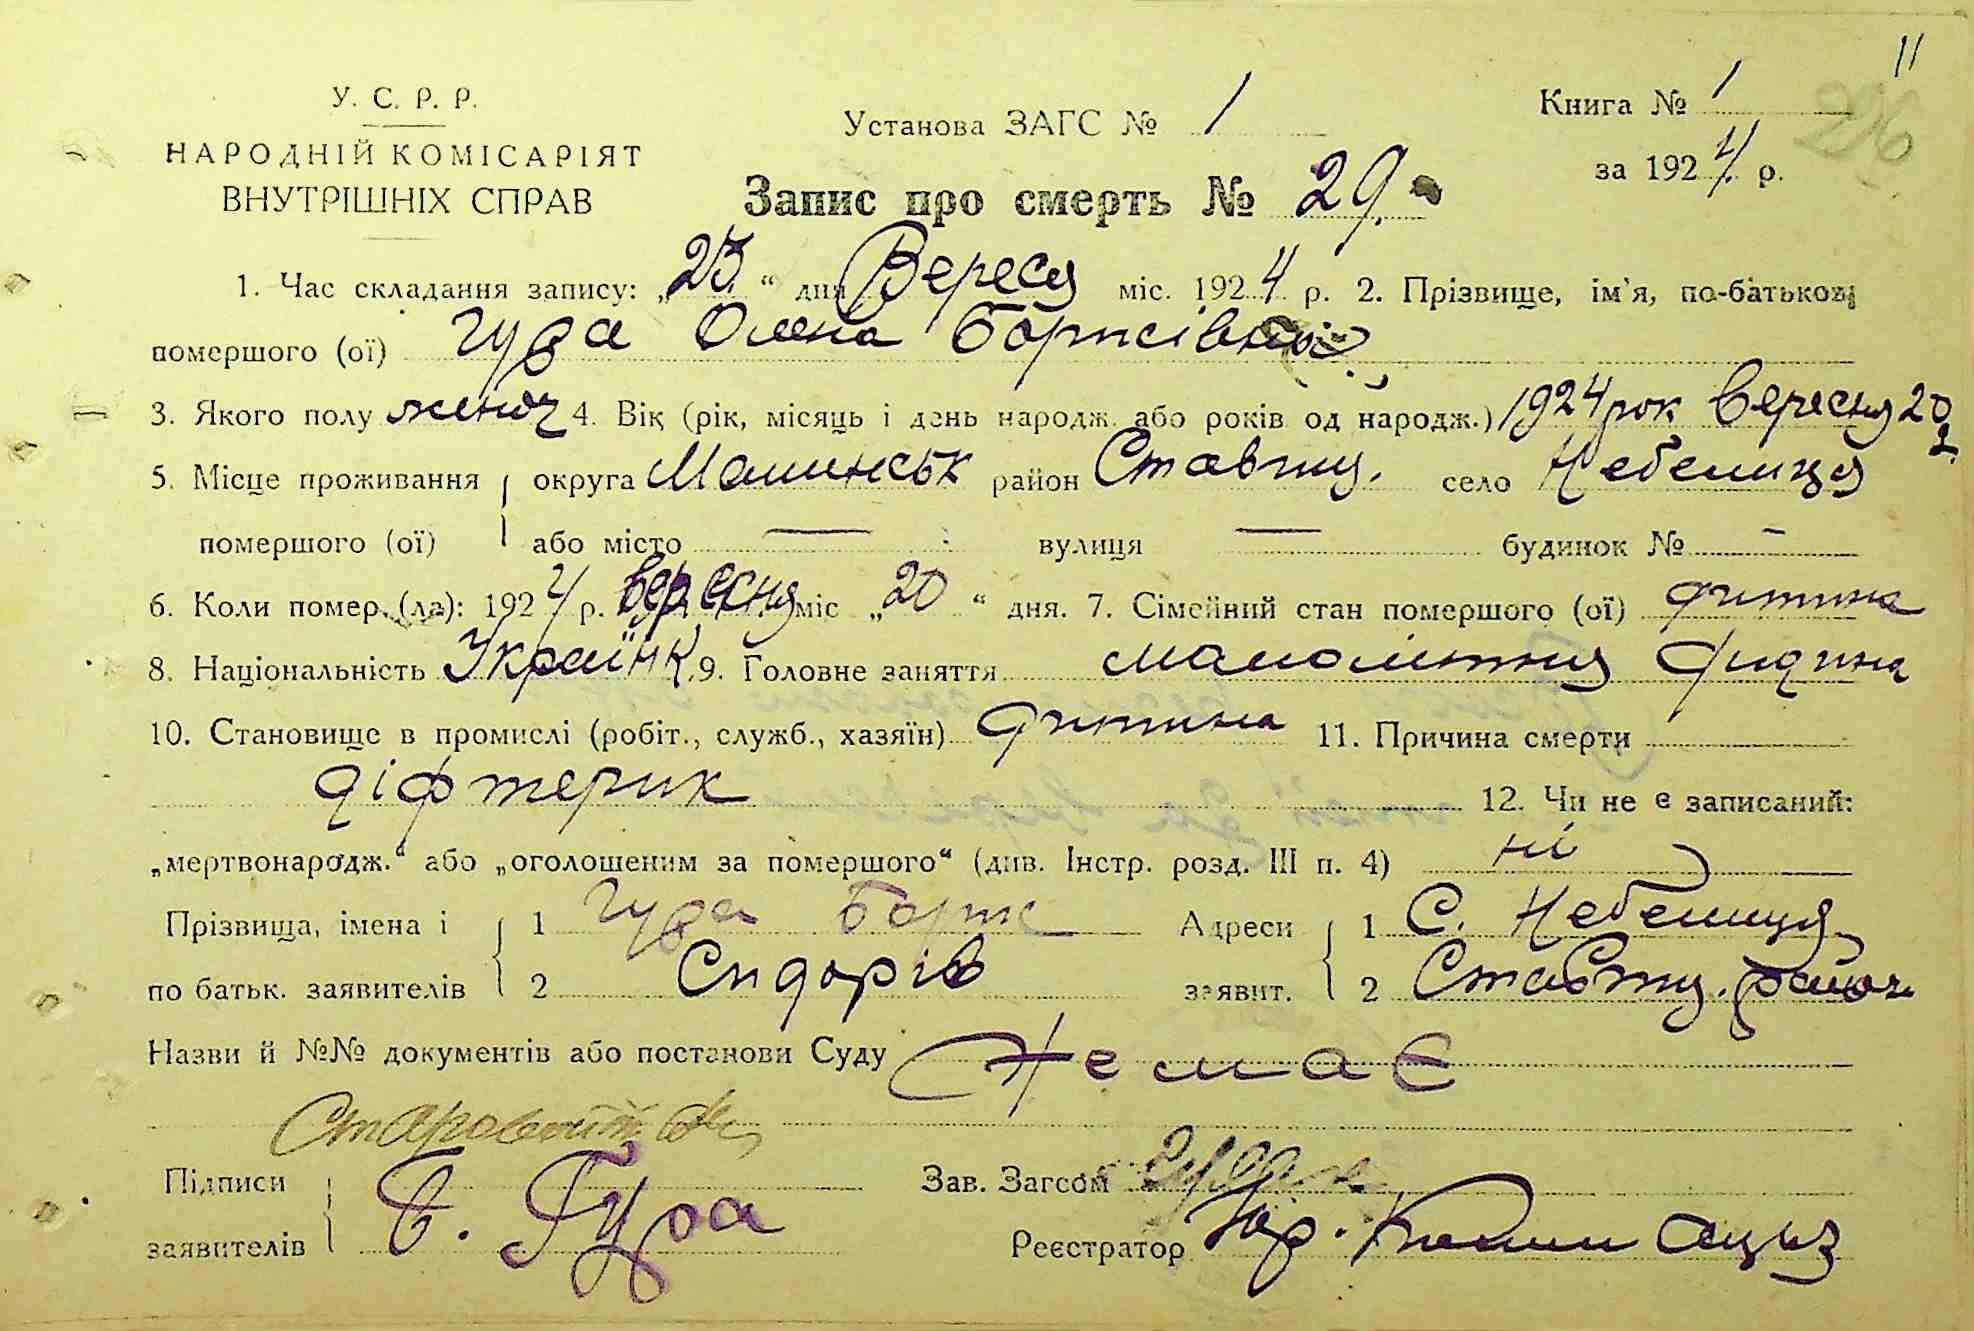 11
У. С. Р. Р.
НАРОДНІЙ КОМІСАРІЯТ
ВНУТРІШНІХ СПРАВ
Установа ЗАГС № 1
Книга № 1
за 1924 р.
Запис про смерть № 29.
1. Час складання запису: „23“ дня Вересня міс. 1924 р. 2. Прізвище, ім'я, по-батькові
помершого (ої) Гуда Олена Боржсівна
3. Якого полу женоч 4. Вік (рік, місяць і день народж. або років од народж.) 1924 рок вересня 20
5. Місце проживання округа Малинськ район Ставищ. село Небелиця
помершого (ої) або місто — вулиця — будинок № —
6. Коли помер. (ла): 1924 р. вересня міс „20“ дня. 7. Сімейний стан помершого (ої) дитина
8. Національність Україн 9. Головне заняття малолітня дидина
10. Становище в промислі (робіт., служб., хазяїн) дитина 11. Причина смерти
діфтерик 12. Чи не є записаний:
„мертвонародж.“ або „оголошеним за помершого“ (див. Інстр. розд. III п. 4) ні
Прізвища, імена і 1 Гуда Адреси 1 С. Небелиця
по батьк. заявителів 2 Сидорів заявит. 2 Ставищ. район
Назви й №№ документів або постанови Суду Немає
Підписи Зав. Загсом
заявителів Б. Гуда Реєстратор